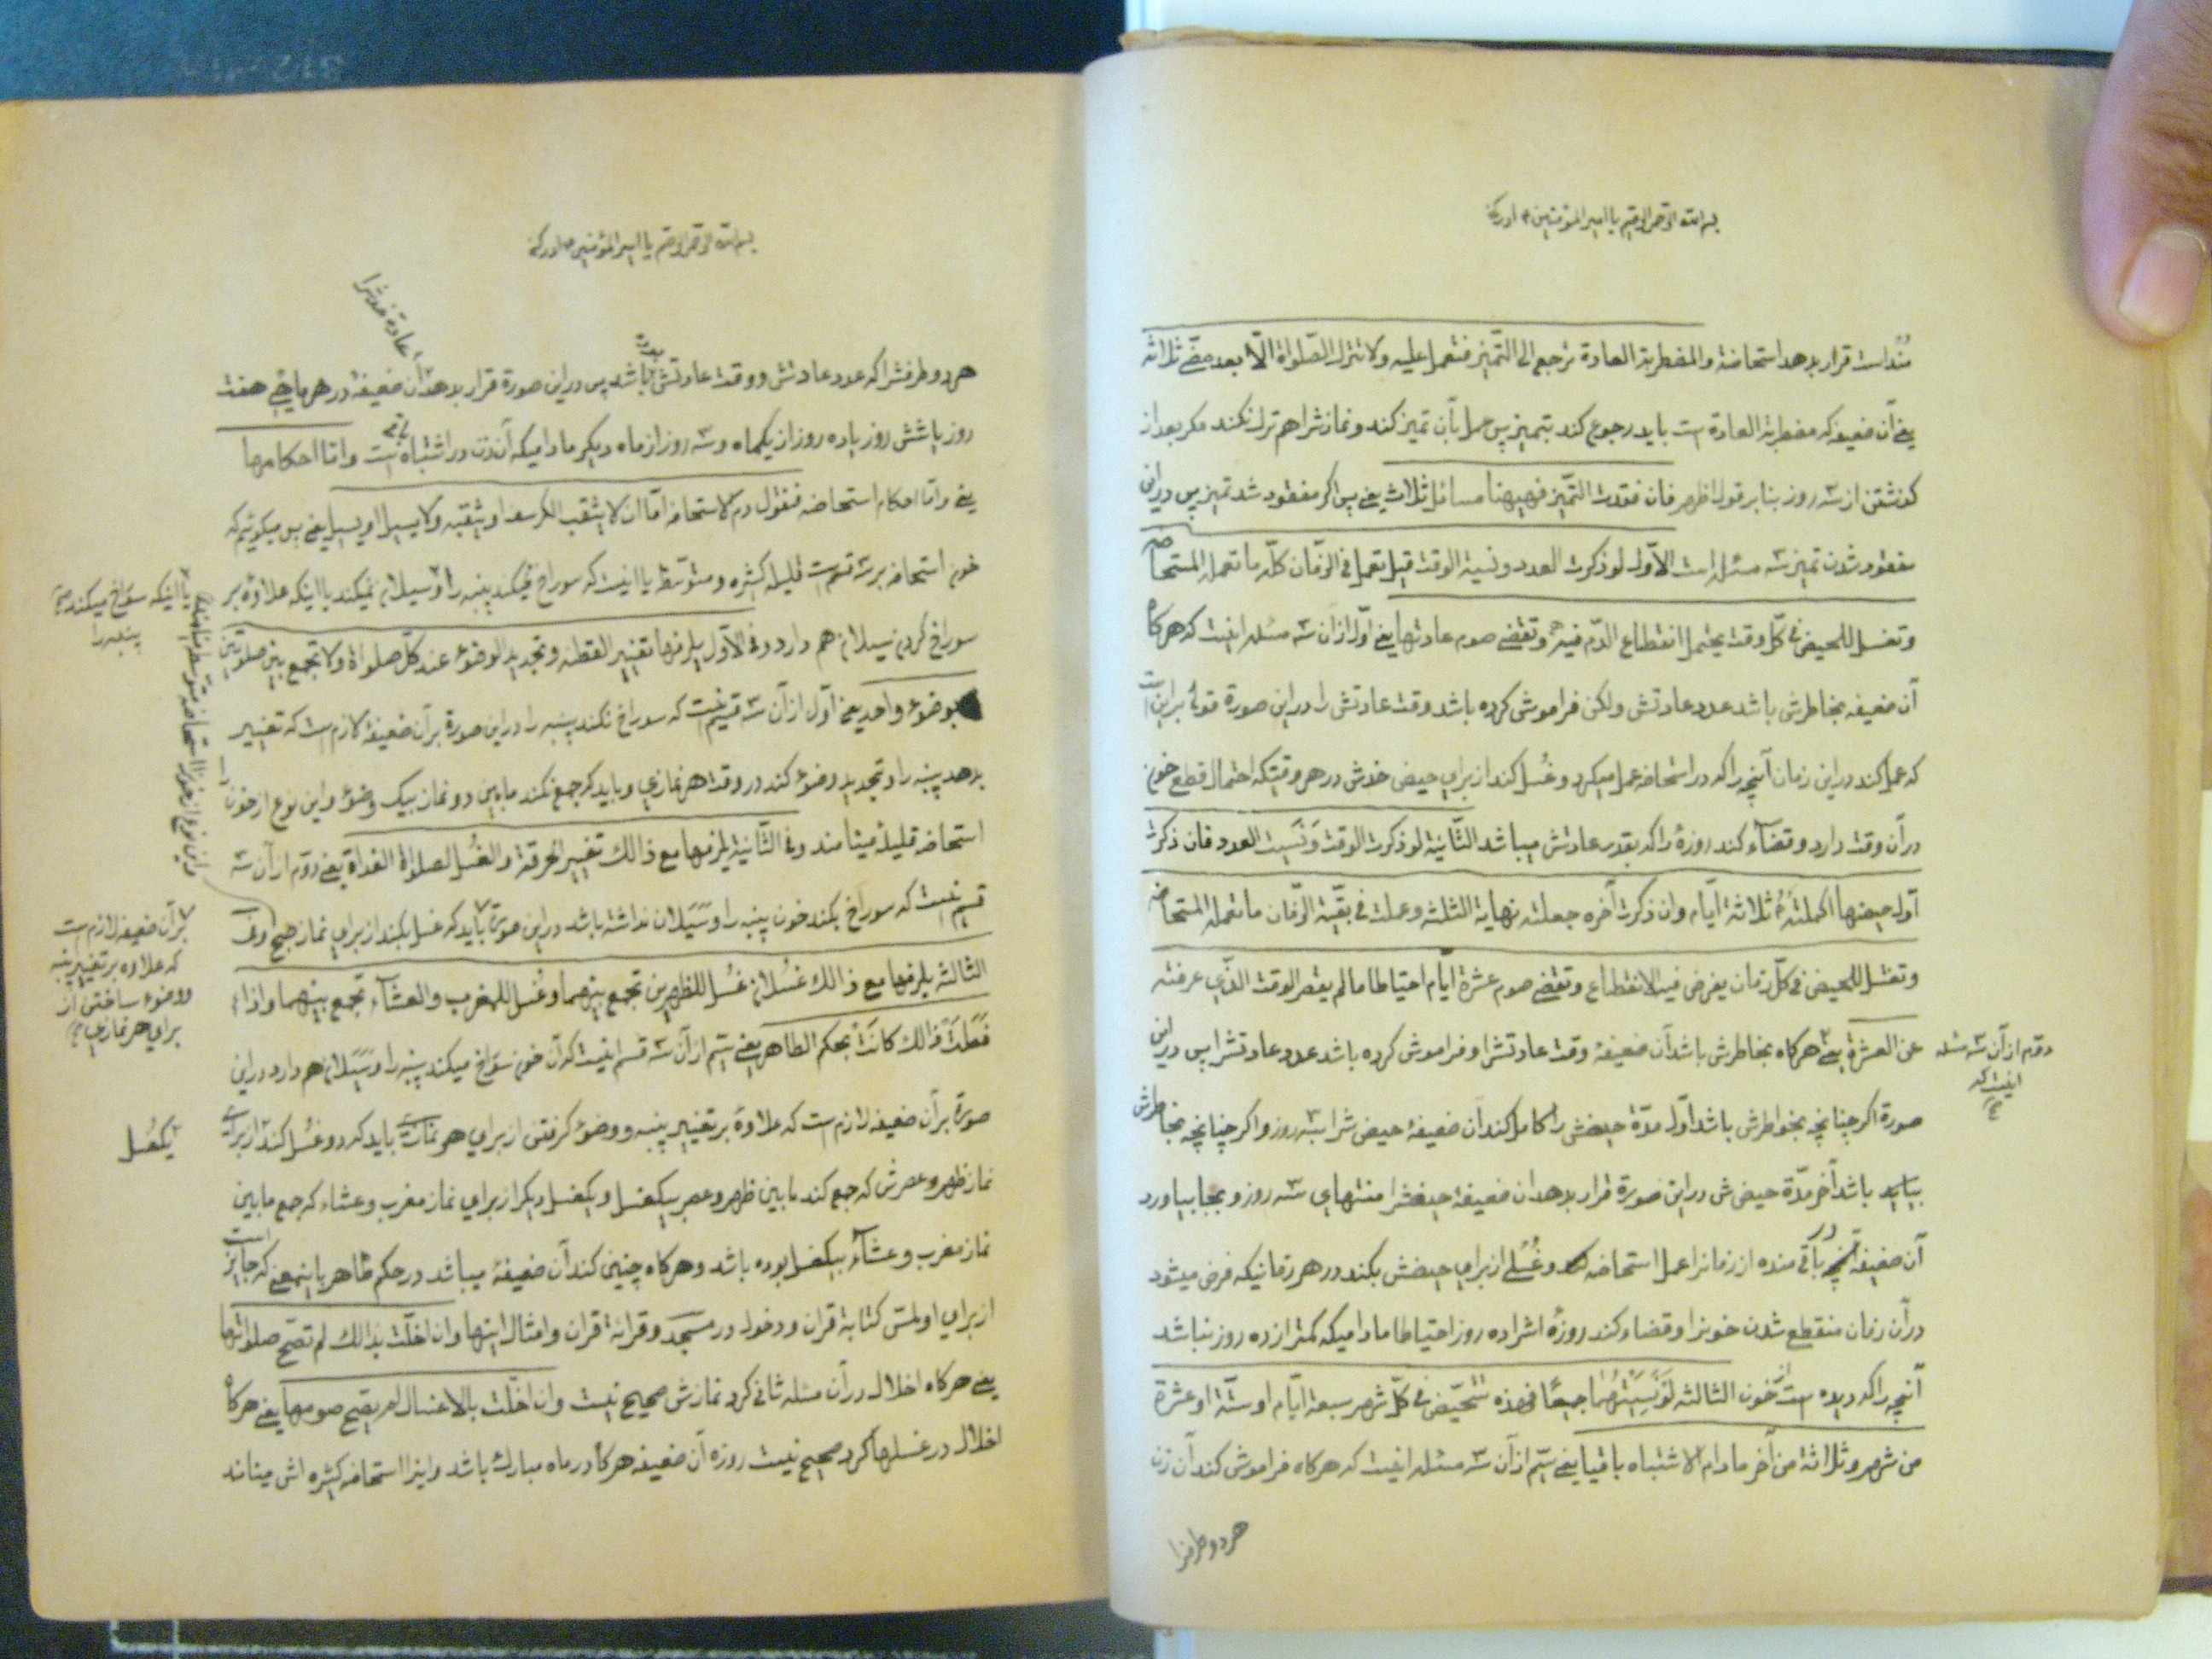 بسم الله الرحمن الرحیم یا امیر المؤمنین ادرکنی
است قرار بدهد استحاضة والمضطربة العادة ترجع الی التمیز فتعمل علیه ولا تترك الصلواة الا بعد مضی ثلاثه
یعنی آن ضعیفه که مضطربة العادة است باید رجوع کند بتمیز پس عمل بآن تمیز کند و نمازشرا هم ترك نکند مکر بعد از
کذشتن از سه روز بنا بر قول اظهر فان فقدت التمیز فهیهنا مسائل ثلاث یعنی پس اکر مفقود شد تمیز پس در این
مفقود شدن تمیز سه مسئله است الاول لو ذکرت العدد و نسیة الوقت قیل تعمل فی الزمان کله ما تعمله المستحاضه
وتغسل للحیض فی کل وقت یحتمل انقطاع الدم فیه وتقضی صوم عادتها یعنی اول از آن سه مسئله اینست که هرکاه
آن ضعیفه بخاطرش باشد عدد عادتش ولکن فراموش کرده باشد وقت عادتش را در این صورة قولی بر این است
که عمل کند در این زمان آنچه را که در استحاضه عمل میکرد و غسل کند از برای حیض خدش در هر وقتیکه احتمال قطع خون
در آن وقت دارد و قضاء کند روزهٔ را که بقدر عادتش میباشد الثانیة لو ذکرت الوقت ونسیت العدد فان ذکرت
اول حیضها اکملته ثلاثة ایام وان ذکرت آخره جعلته نهایة الثلثه وعملت فی بقیة الزمان ما تعمله المستحاضه
وتغتسل للحیض فی کل زمان یفرض فیه الانقطاع وتقضی صوم عشرة ایام احتیاطا ما لم یقصر الوقت الذی عرفته
عن العشرة یعنی هرکاه بخاطرش باشد آن ضعیفهٔ وقت عادتشرا و فراموش کرده باشد عدد عادتشرا پس در این
دوّم از آن سه مسئله
اینست که
صورة اکر چنانچه بخواطرش باشد اول مدة حیضش را کامل کند آن ضعیفهٔ حیض شرا بسه روز و اکر چنانچه بخاطرش
بیاید باشد آخر مدّة حیض ش در این صورة قرار بدهد ان ضعیفه حیضشرا منتهای سه روز و بجا بیاورد
آن ضعیفه در باقی منده از زمانرا عمل استحاضه و غسلی از برای حیضش بکند در هر زمانیکه فرض میشود
در آن زمان منقطع شدن خونرا و قضاء کند روزهٔ اشرا ده روز احتیاطا مادامیکه کمتر از ده روز نباشد
آنچه را که دیده است از خون الثالثه لو نسیتهما جمیعا فهذه تتحیض فی کل شهر سبعة ایام او ستة او عشرة
من شهر وثلاثة من آخر ما دام الاشتباه باقیا یعنی سیّم از آن سه مسئله اینست که هرکاه فراموش کند آن زن
هر دو طرفرا
بسم الله الرحمن الرحیم یا امیر المؤمنین ادرکنی
عادة خدشرا
هر دو طرفشرا که عدد عادتش و وقت عادتش بوده باشد پس در این صورة قرار بدهد آن ضعیفهٔ در هر ماهی هفت
روز یا شش روز یا ده روز از یکماه و سه روز از ماه دیکر مادامیکه آن زن در اشتباه باقی است واما احکامها
یعنی و اما احکام استحاضه فنقول دم الاستحاضه اما ان لا یثقب الکرسف او یثقبه ولا یسیل او یسیل یعنی پس میکوئیم که
خون استحاضه بر سه قسم است قلیله کثیره و متوسطه یا اینست که سوراخ نمیکند پنبه را و سیلان نمیکند یا اینکه علاوه بر
یا اینکه سوراخ میکند
پنبه را
سوراخ کردن سیلان هم دارد وفی الاول یلزمها تغییر القطنه وتجدید الوضوء عند کل صلواة ولا تجمع بین صلوتین
بوضوء واحد یعنی اول از آن سه قسم اینست که سوراخ نکند پنبه را در این صورة بر آن ضعیفهٔ لازم است که تغییر
بدهد پنبه را و تجدید وضوء کند در وقت هر نمازی و باید که جمع نکند مابین دو نماز بیک وضوء و این نوع از خون را
استحاضه قلیلهٔ مینامند وفی الثانیة یلزمها مع ذالك تغییر الخرقة والغسل لصلواة الغداة یعنی دوّم از آن سه
و این نوع از خونرا استحاضه متوسطه مینامند
قسم اینست که سوراخ بکند خون پنبه را و سیلان نداشته باشد در این صورة باید که غسل بکند از برای نماز صبح وفی
بر آن ضعیفه لازم است
که علاوه بر تغییر پنبه
و وضوء ساختن از
برای هر نمازی
الثالثة یلزمها مع ذالك غسلان غسل للظهرین تجمع بینهما وغسل للمغرب والعشاء تجمع بینهما واذا
فعلت ذالك کانت بحکم الطاهر یعنی سیّم از آن سه قسم اینست که آن خون سوراخ میکند پنبه را و سیلان هم دارد در این
صورة بر آن ضعیفه لازم است که علاوهٔ بر تغییر پنبه و وضوء کرفتن از برای هر نمازی باید که دو غسل کند از برای
یکغسل
نماز ظهر و عصرش که جمع کند مابین ظهر و عصر بیکغسل و یکغسل دیکر از برای نماز مغرب و عشاء که جمع مابین
نماز مغرب و عشاء بیکغسل بوده باشد و هرکاه چنین کند آن ضعیفهٔ میباشد در حکم طاهر باینمعنی که جایز است
از برای او لمس کتابة قران و دخول در مسجد و قرائة قران و امثال اینها وان اخلّت بذالك لم تصح صلواتها
یعنی هرکاه اخلال در آن مسئله ثانی کرد نمازش صحیح نیست وان اخلّت بالاغسال لم یصح صومها یعنی هرکاه
اخلال در غسلها کرد صحیح نیست روزه آن ضعیفه هرکاه در ماه مبارك باشد و اینرا استحاضه کثیره اش مینامند